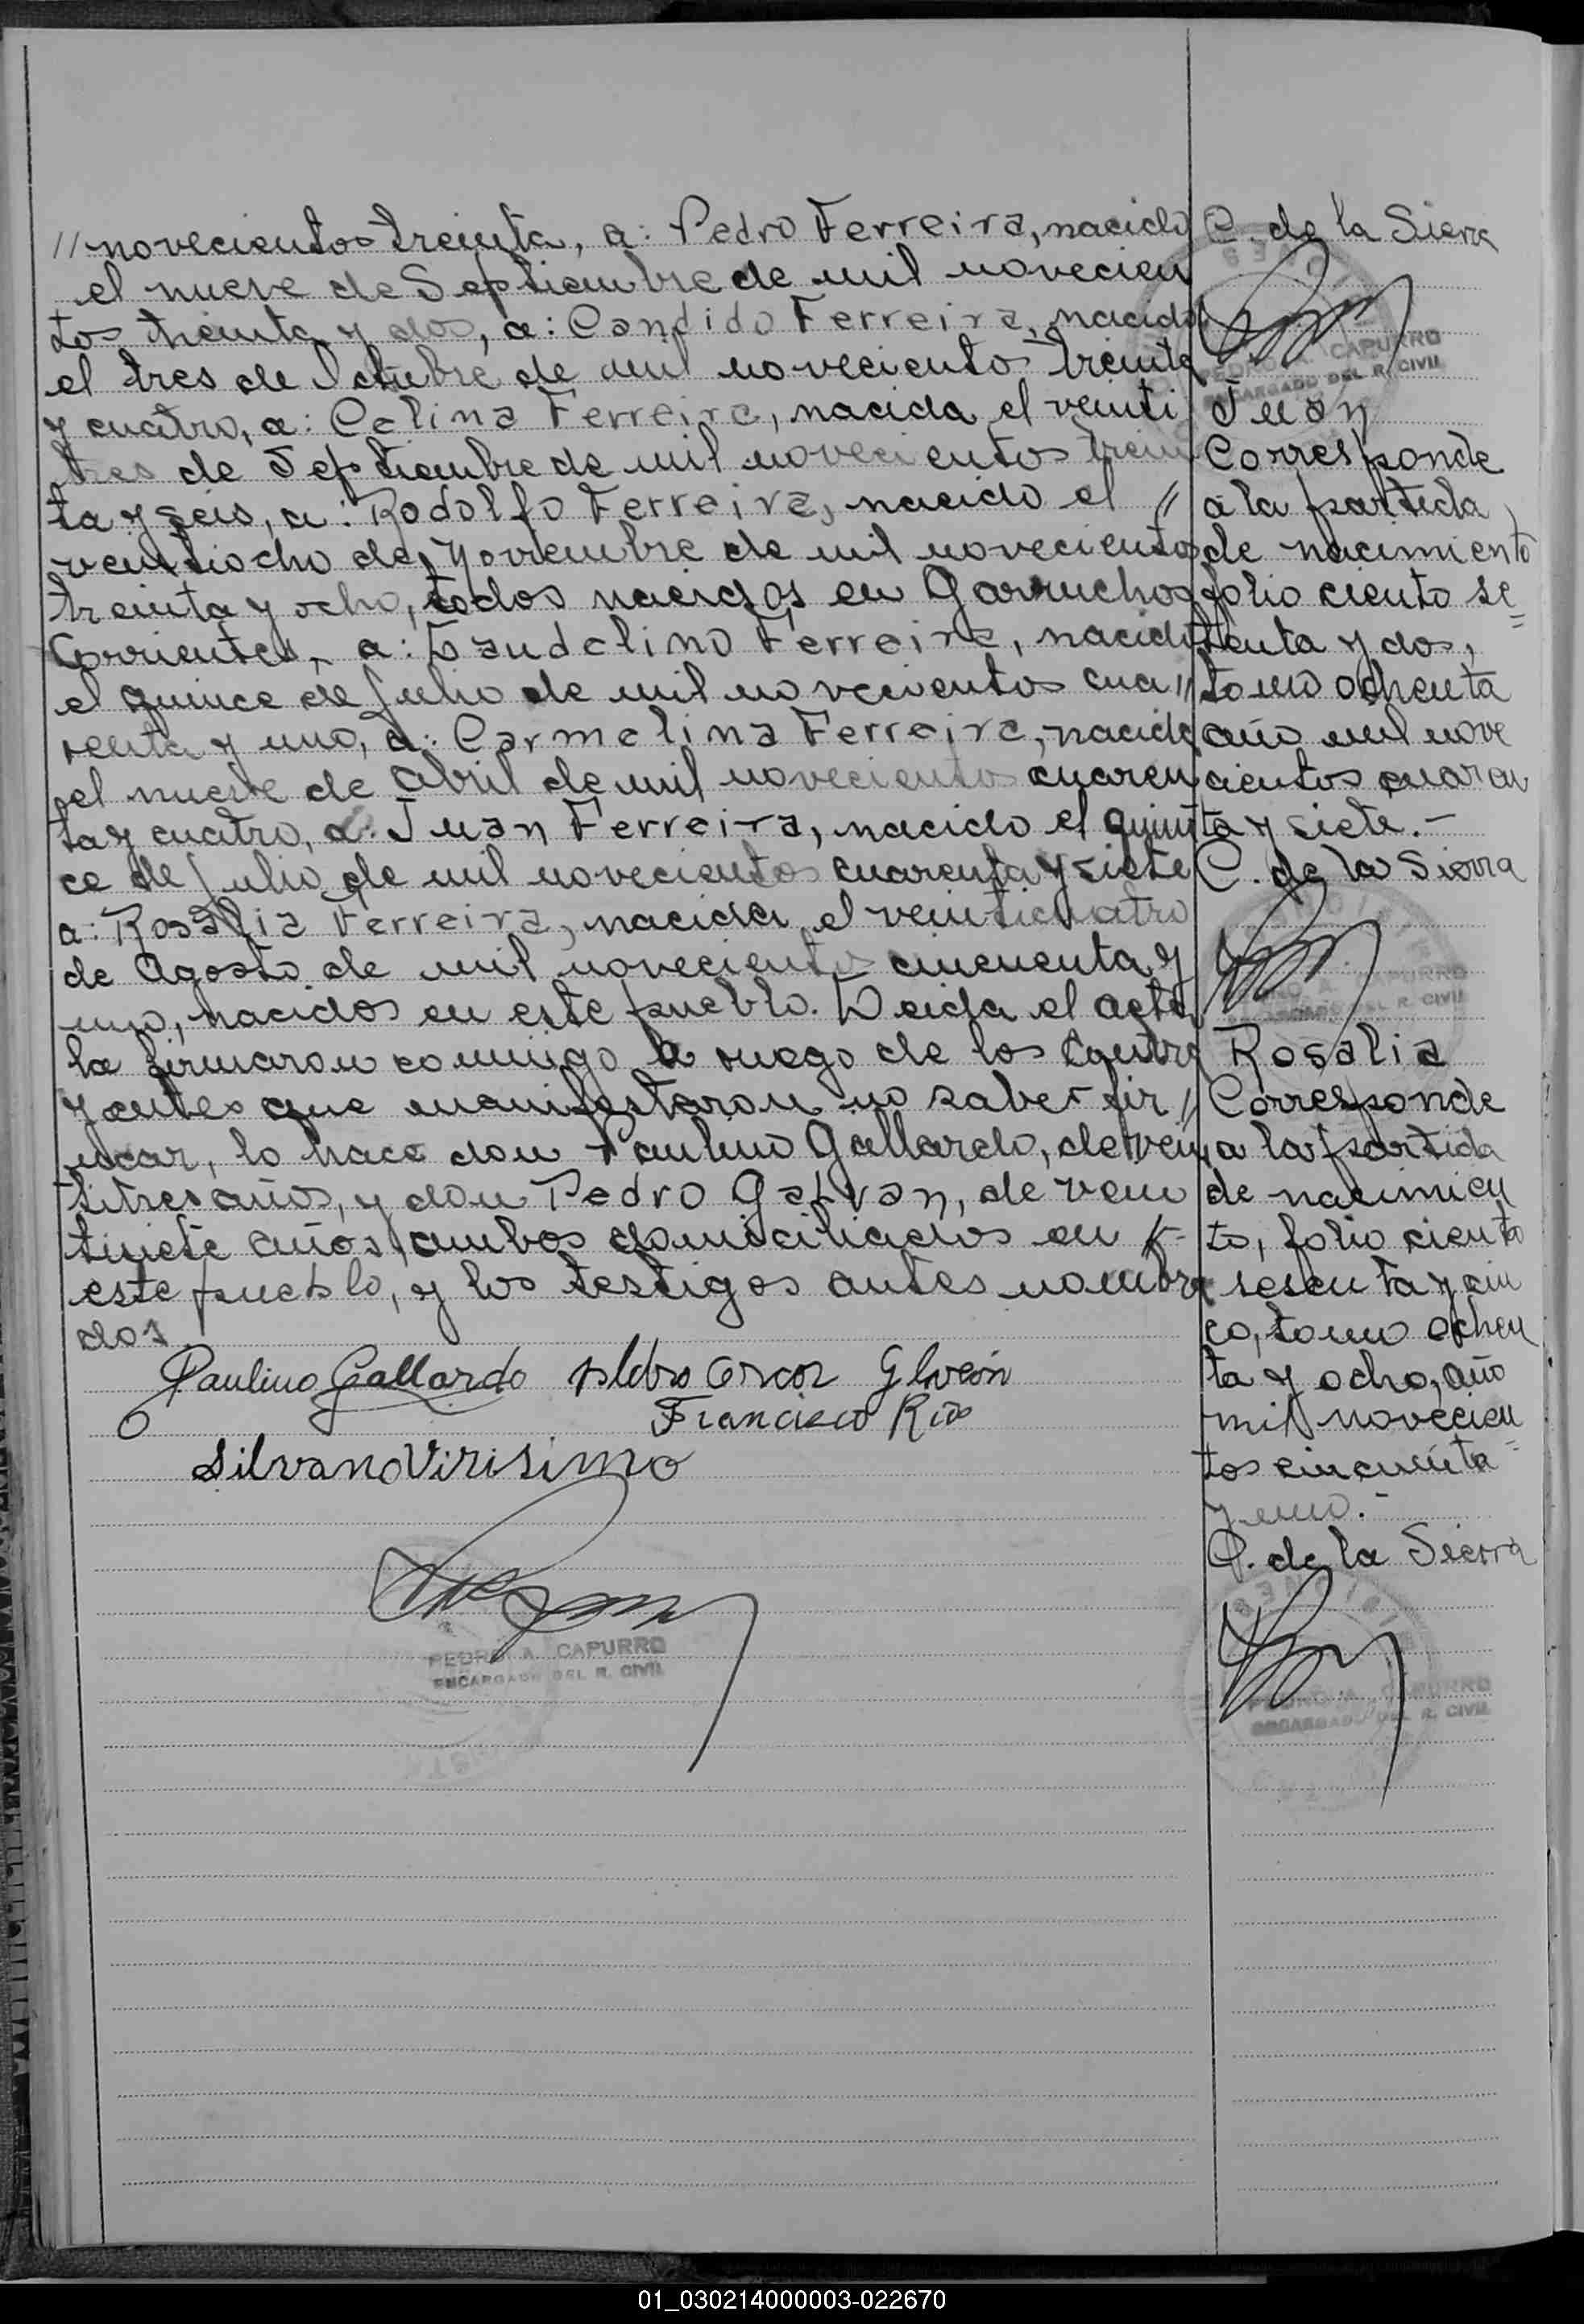 // novecientos treinta, a: Pedro Ferreira, nacido
el nueve de Septiembre de mil novecien
tos treinta y dos, a: Candido Ferreira, nacido
el tres de Octubre de mil novecientos treinta
y cuatro, a: Celina Ferreira, nacida el veinti
tres de Septiembre de mil novecientos trein
ta y seis, a: Rodolfo Ferreira, nacido el //
veintiocho de Noviembre de mil novecientos
treinta y ocho, todos nacidos en Garruchos
Corrientes, a: Laudelino Ferreira, nacido
el quince de Julio de mil novecientos cua //
renta y uno, a: Carmelina Ferreira, nacida
el nueve de Abril de mil novecientos cuaren
ta y cuatro, a: Juan Ferreira, nacido el quin
ce de Julio de mil novecientos cuarenta y siete
a: Rosalia Ferreira, nacida el veinticuatro
de Agosto de mil novecientos cincuenta y
uno, nacidos en este pueblo. Leida el acta
la firmaron conmigo a ruego de los contra
yentes que manifestaron no saber fir //
mar, lo hace don Paulino Gallardo, de vein
titres años, y don Pedro Galvan, de vein
tisiete años, ambos domiciliados en
este pueblo, y los testigos antes nombra
dos
Paulino Gallardo Pedro Oscar Galván
Francisco Rios
Silvano Virisimo
PEDRO A. CAPURRO
ENCARGADO DEL R. CIVIL
C. de la Sierra
PEDRO A. CAPURRO
ENCARGADO DEL R. CIVIL
Juan
Corresponde
a la partida
de nacimiento
folio ciento se=
tenta y dos,
tomo ochenta
año mil nove
cientos cuaren
ta y siete.-
C. de la Sierra
PEDRO A. CAPURRO
ENCARGADO DEL R. CIVIL
Rosalia
Corresponde
a la partida
de nacimien
to, folio ciento
sesenta y cin
co, tomo ochen
ta y ocho, año
mil novecien
tos cincuenta=
y uno.-
C. de la Sierra
PEDRO A. CAPURRO
ENCARGADO DEL R. CIVIL
01_030214000003-022670